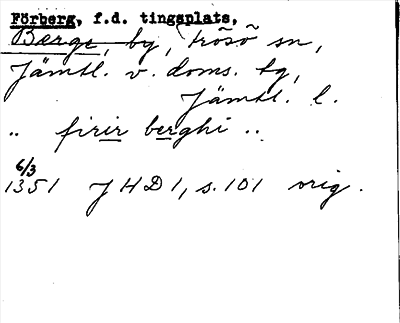 Förberg, f.d. tingsplats,
Berge, by, Frösö sn,
Jämtl. v. doms. tg,
Jämtl. l.
.. firir berghi ..
6/3
1351 JHD 1, s. 101 orig.